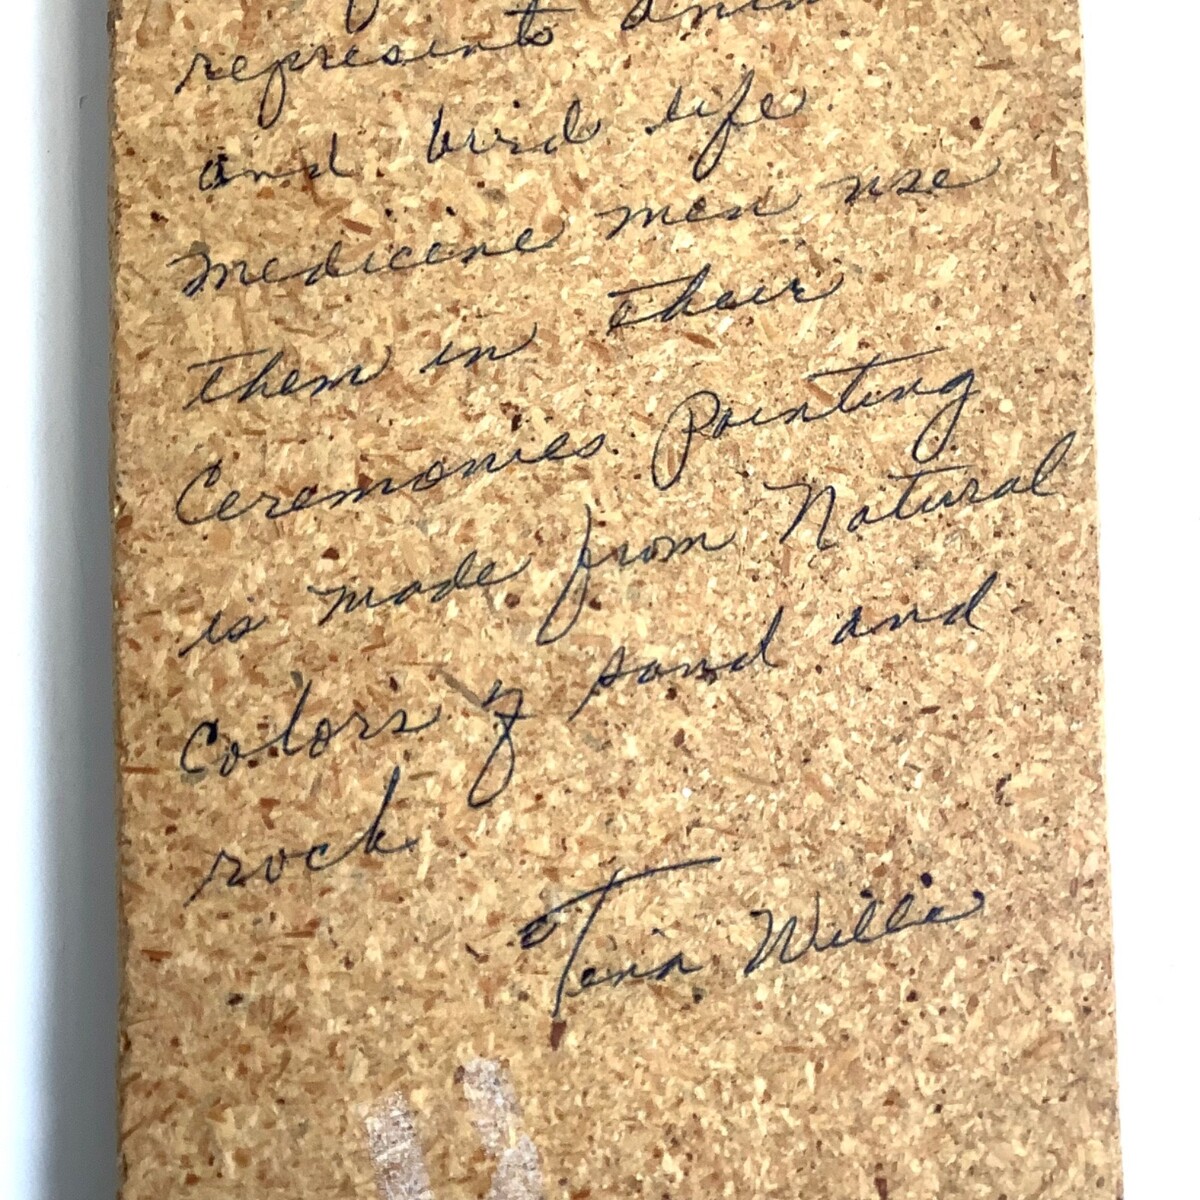 represents anim
and bird life
Medicine men use
them in their
Ceremonies. Painting
is made from Natural
Colors of sand and
rock
Tena Willie